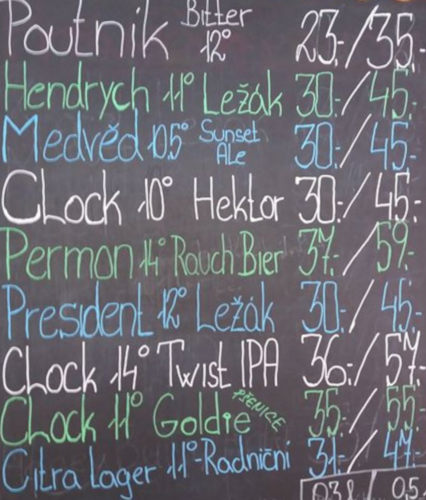 Poutnik Bitter 12° 23.-/35.-
Hendrych 11° Ležák 30.-/45.-
Medvěd 10.5° Sunset Ale 30.-/45.-
CLock 10° Hektor 30.-/45.-
Permon 14° Rauch Bier 37.-/59.-
President 12° Ležák 30.-/45.-
CLock 14° Twist IPA 36.-/57.-
CLock 11° Goldie PŠENICE 35.-/55.-
Citra Lager 11°-Radniční 31.-/47.-
03l/0,5